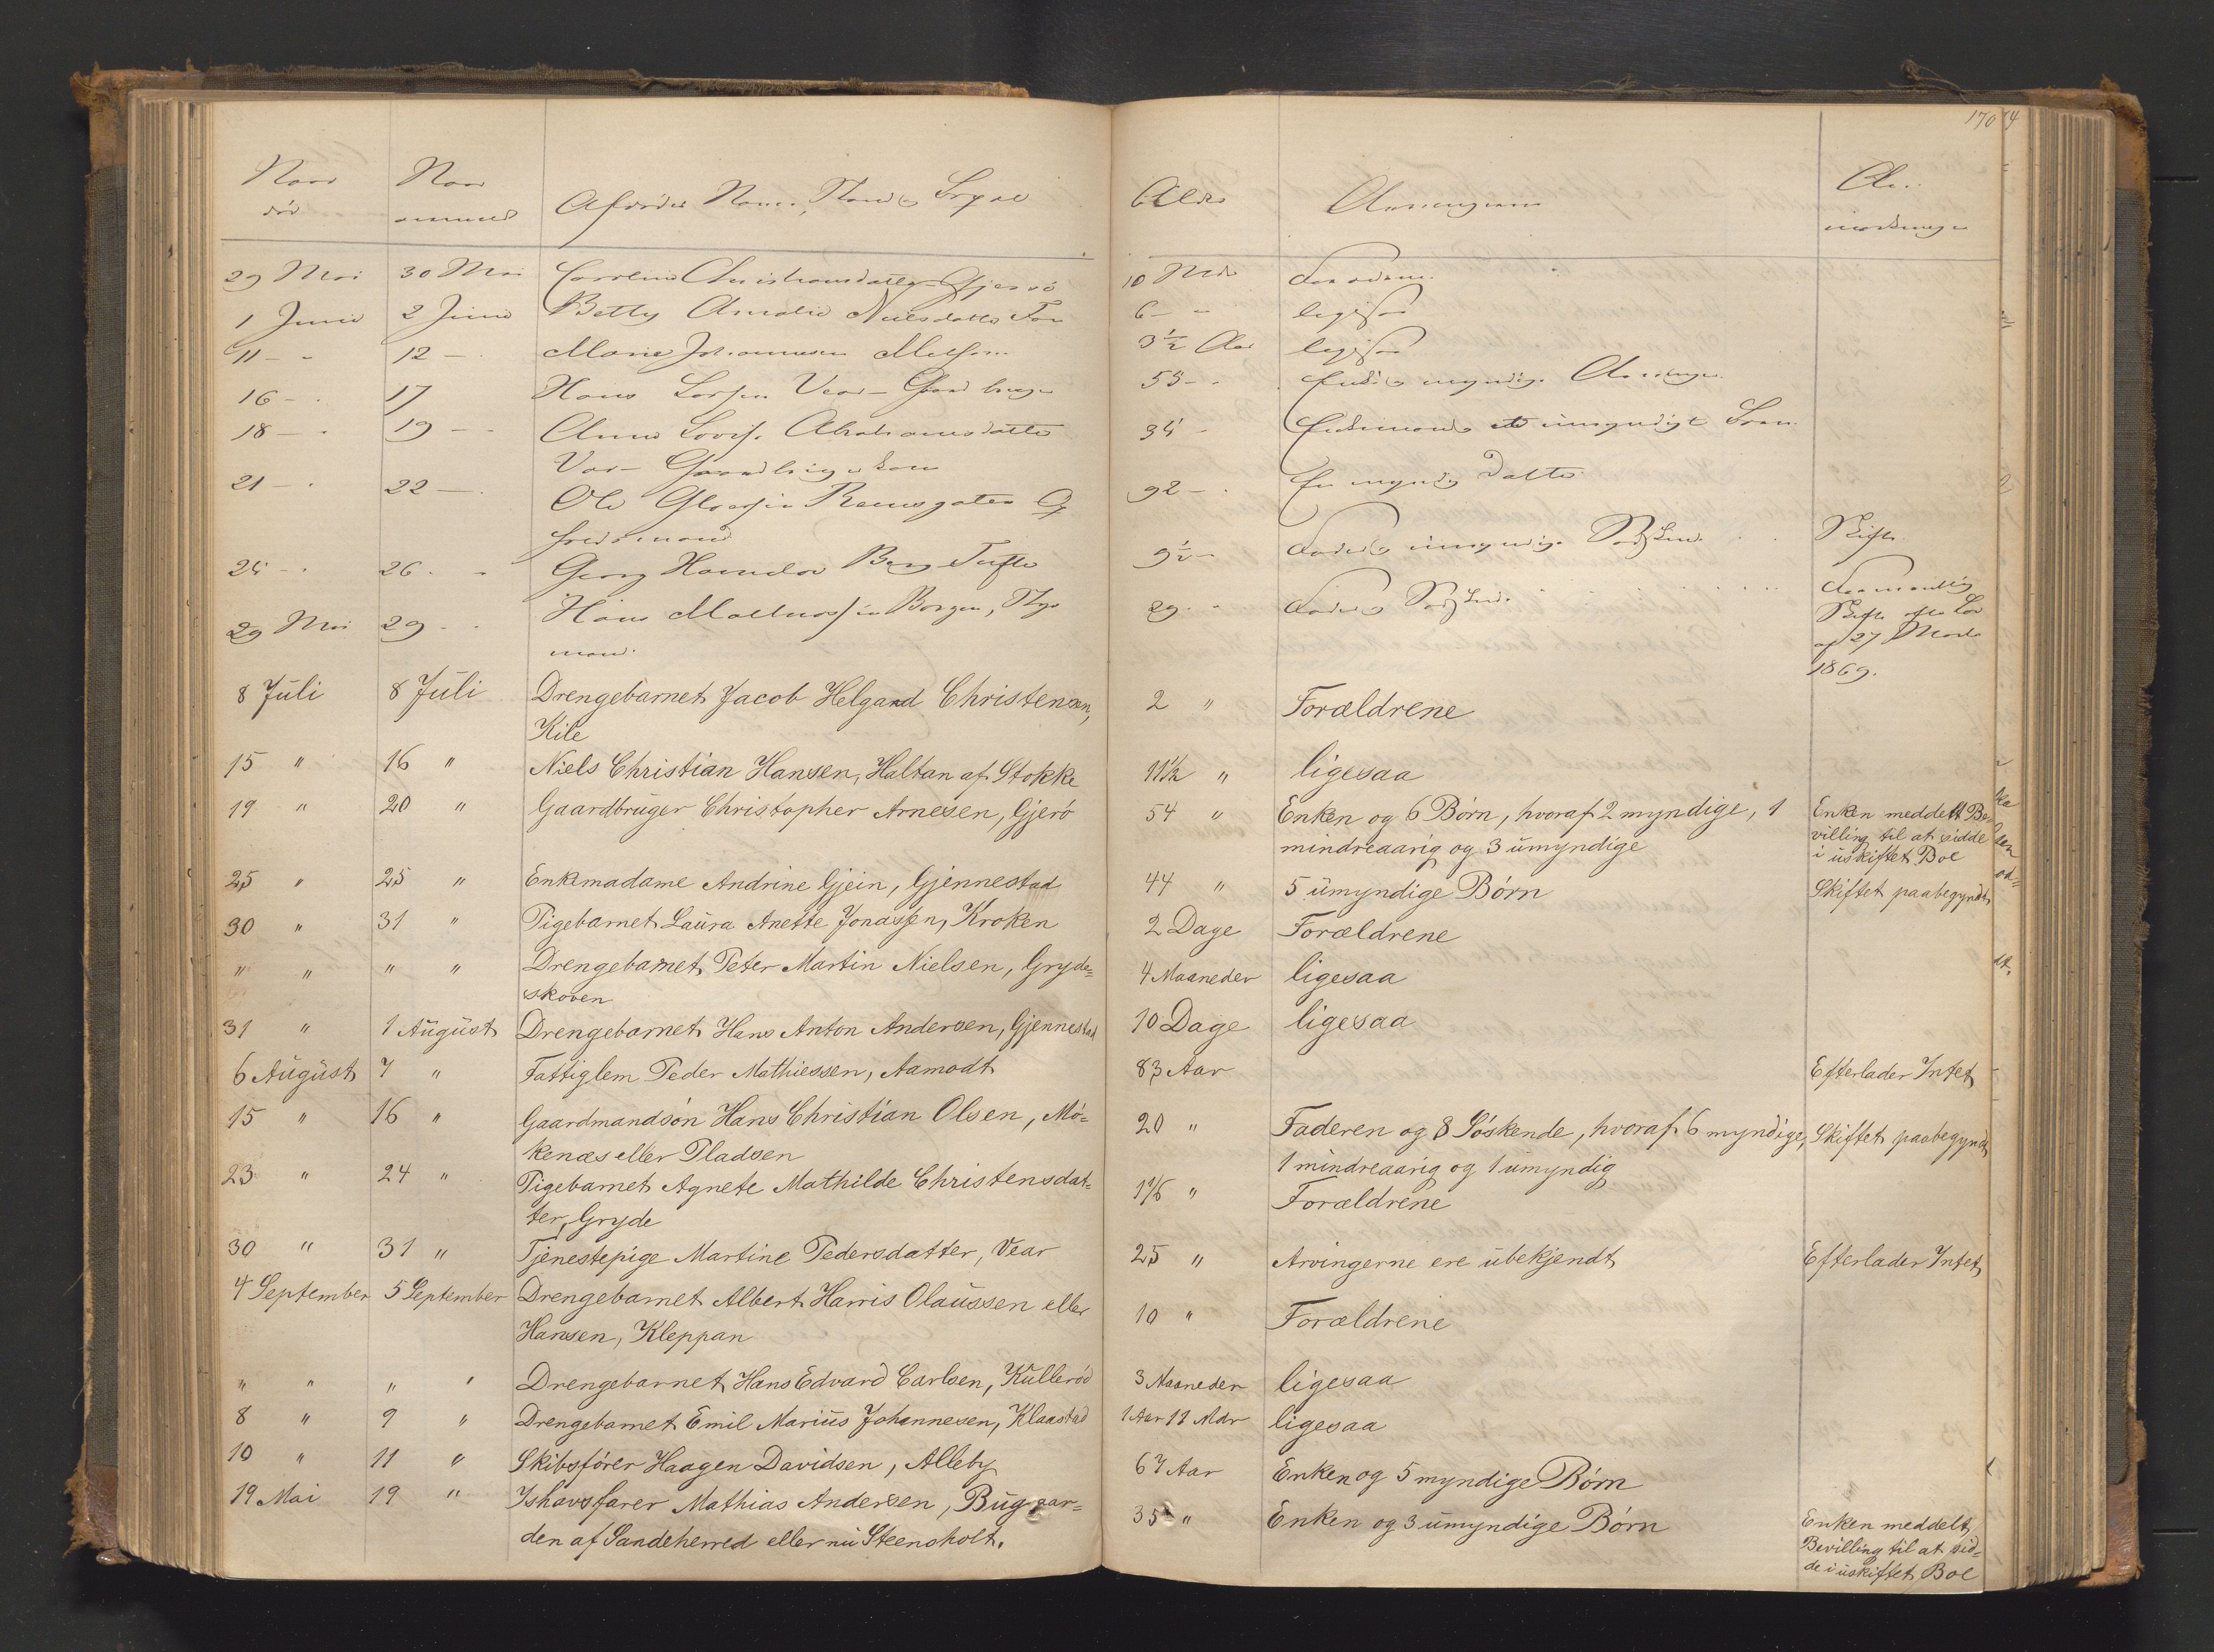 170
Naar død
Naar anmeldt
Afdødes Navn, Stand og
Alder
Arvingerne
An-
mærkninger
29 Mai 30 Mai Christiansdatter Gjerrø 10 Mdr Forældrene
1 Juni 2 Juni Betty Amalie Nielsdatter 6 - " ligesaa
11 - " 12 - Marie Johannesen Melsom 3 1/2 Aar ligesaa
16 - 17 Hans Larsen Vear - Gaardbruger 55 - Enke og myndige Arvinger
18 - 19 - Anne Lovise Abrahamsdatter 34 - Enkemand og et umyndigt Barn
Vear - Gaardbrugerkone
21 - 22 - Ole Ramsgaten 92 - En myndig Datter
26 - Georg Berg Tufte 9 1/2 - Fader og umyndige Søskende Skifte
29 Mai 29 - Hans Borgen, 29 - Fader og Søskende Skifte efter Lov
mand.
af 27 Marts
1869.
8 Juli 8 Juli Drengebarnet Jacob Helgand Christensen, 2 " Forældrene
Kile
15 " 16 " Niels Christian Hansen, Haltan af Stokke 11 1/2 " ligesaa
19 " 20 " Gaardbruger Christopher Arnesen, Gjerø 54 " Enken og 6 Børn, hvoraf 2 myndige, 1 Enken meddelt Be-
mindreaarig og 3 umyndige villing til at sidde
i uskiftet Boe
25 " 25 " Enkemadame Andrine Gjein, Gjennestad 44 " 5 umyndige Børn Skiftet paabegyndt
30 " 31 " Pigebarnet Laura Anette Jonassen, Kroken 2 Dage Forældrene
" " " " Drengebarnet Peter Martin Nielsen, Gryde= 4 Maaneder ligesaa
skoven
31 " 1 August Drengebarnet Hans Anton Andersen, Gjennestad 10 Dage ligesaa
6 August 7 " Fattiglem Peder Mathiessen, Aamodt 83 Aar Efterlader Intet
15 " 16 " Gaardmandsøn Hans Christian Olsen, Mö= 20 " Faderen og 8 Söskende, hvoraf 6 myndige, Skiftet paabegyndt
kenæs eller Pladsen 1 mindreaarig og 1 umyndig
23 " 24 " Pigebarnet Agnete Mathilde Christensdat= 1 1/6 " Forældrene
ter, Gryde
30 " 31 " Tjenestepige Martine Pedersdatter, Vear 25 " Arvingerne ere ubekjendt Efterlader Intet
4 September 5 September Drengebarnet Albert Harris Olaussen eller 10 " Forældrene
Hansen, Kleppan
" " " " Drengebarnet Hans Edvard Carlsen, Kullerød 3 Maaneder ligesaa
8 " 9 " Drengebarnet Emil Marius Johannesen, Klaastad 1 Aar 11 Mdr ligesaa
10 " 11 " Skibsfører Haagen Davidsen, Alleby 67 Aar Enken og 5 myndige Børn
19 Mai 19 " Ishavsfarer Mathias Andersen, Bugaar= 35 " Enken og 3 umyndige Børn Enken meddelt
den af Sandeherred eller nu Steensholt. Bevilling til at sid=
de i uskiftet Boe